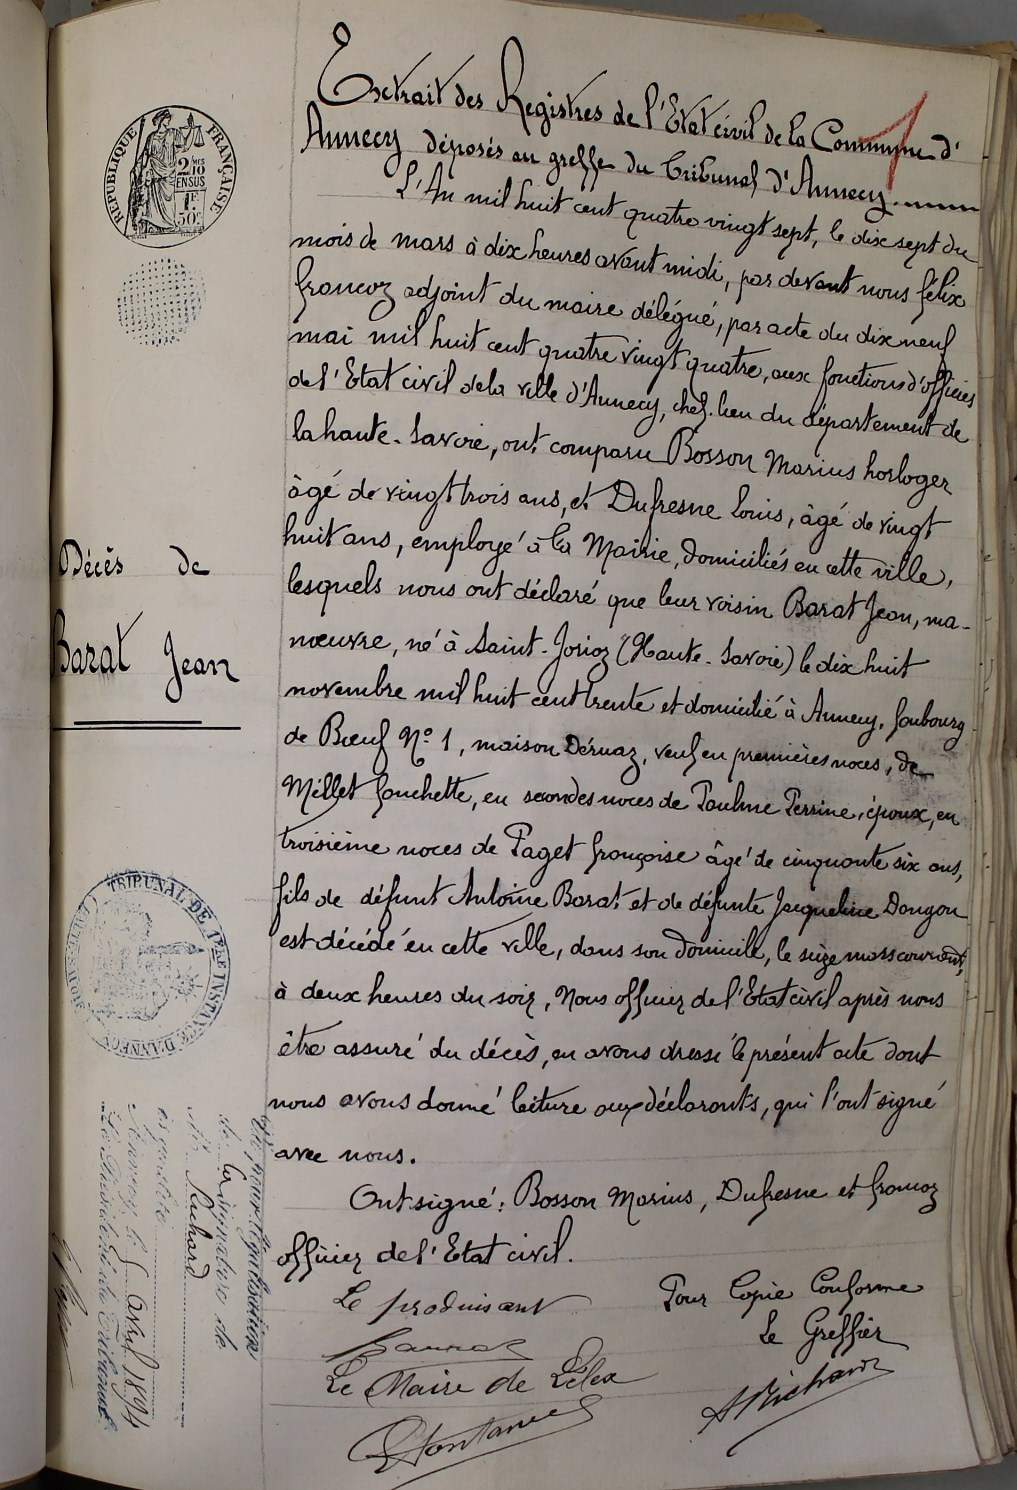 Extrait des Registres de l'Etat civil de la Commune d'
Annecy déposés au greffe du Tribunal d'Annecy
L'An mil huit cent quatre vingt sept, le dix sept du
mois de mars à dix heures avant midi, par devant nous félix
francoz adjoint du maire délégué, par acte du dix neuf
mai mil huit cent quatre vingt quatre, aux fonctions d'officier
de l'Etat civil de la ville d'Annecy, chef-lieu du département de
la haute-Savoie, ont comparu Bosson Marius horloger
âgé de vingt trois ans, et Dufresne Louis, âgé de vingt
huit ans, employé à la Mairie, domiciliés en cette ville,
lesquels nous ont déclaré que leur voisin Barat Jean, ma-
nœuvre, né à Saint-Jorioz (Haute-Savoie) le dix huit
novembre mil huit cent trente et domicilié à Annecy, faubourg
de Bœuf N° 1, maison Dérvaz, veuf en premières noces, de
Millet fanchette, en secondes noces de Pauline Perrine, époux, en
troisième noces de Paget françoise âgé de cinquante six ans,
fils de défunt Antoine Barat et de défunte Jacqueline Dongon
est décédé en cette ville, dans son domicile, le seize mars courant,
à deux heures du soir, Nous officier de l'Etat civil après nous
être assuré du décès, en avons dressé le présent acte dont
nous avons donné lecture aux déclarants, qui l'ont signé
avec nous.
Ont signé: Bosson Marius, Dufresne et francoz
officier de l'Etat civil.
Pour Copie Conforme
Le Greffier
ARichard
Le produisant
Le Maire de Lélex
RÉPUBLIQUE FRANÇAISE
2/10 EN SUS
1F 50c
Décès de
Barat Jean
TRIBUNAL DE 1ère INSTANCE D'ANNECY
Vu pour légalisation
de la signature de
Mr Richard
Annecy, le 5 avril 1894
Le Président du Tribunal